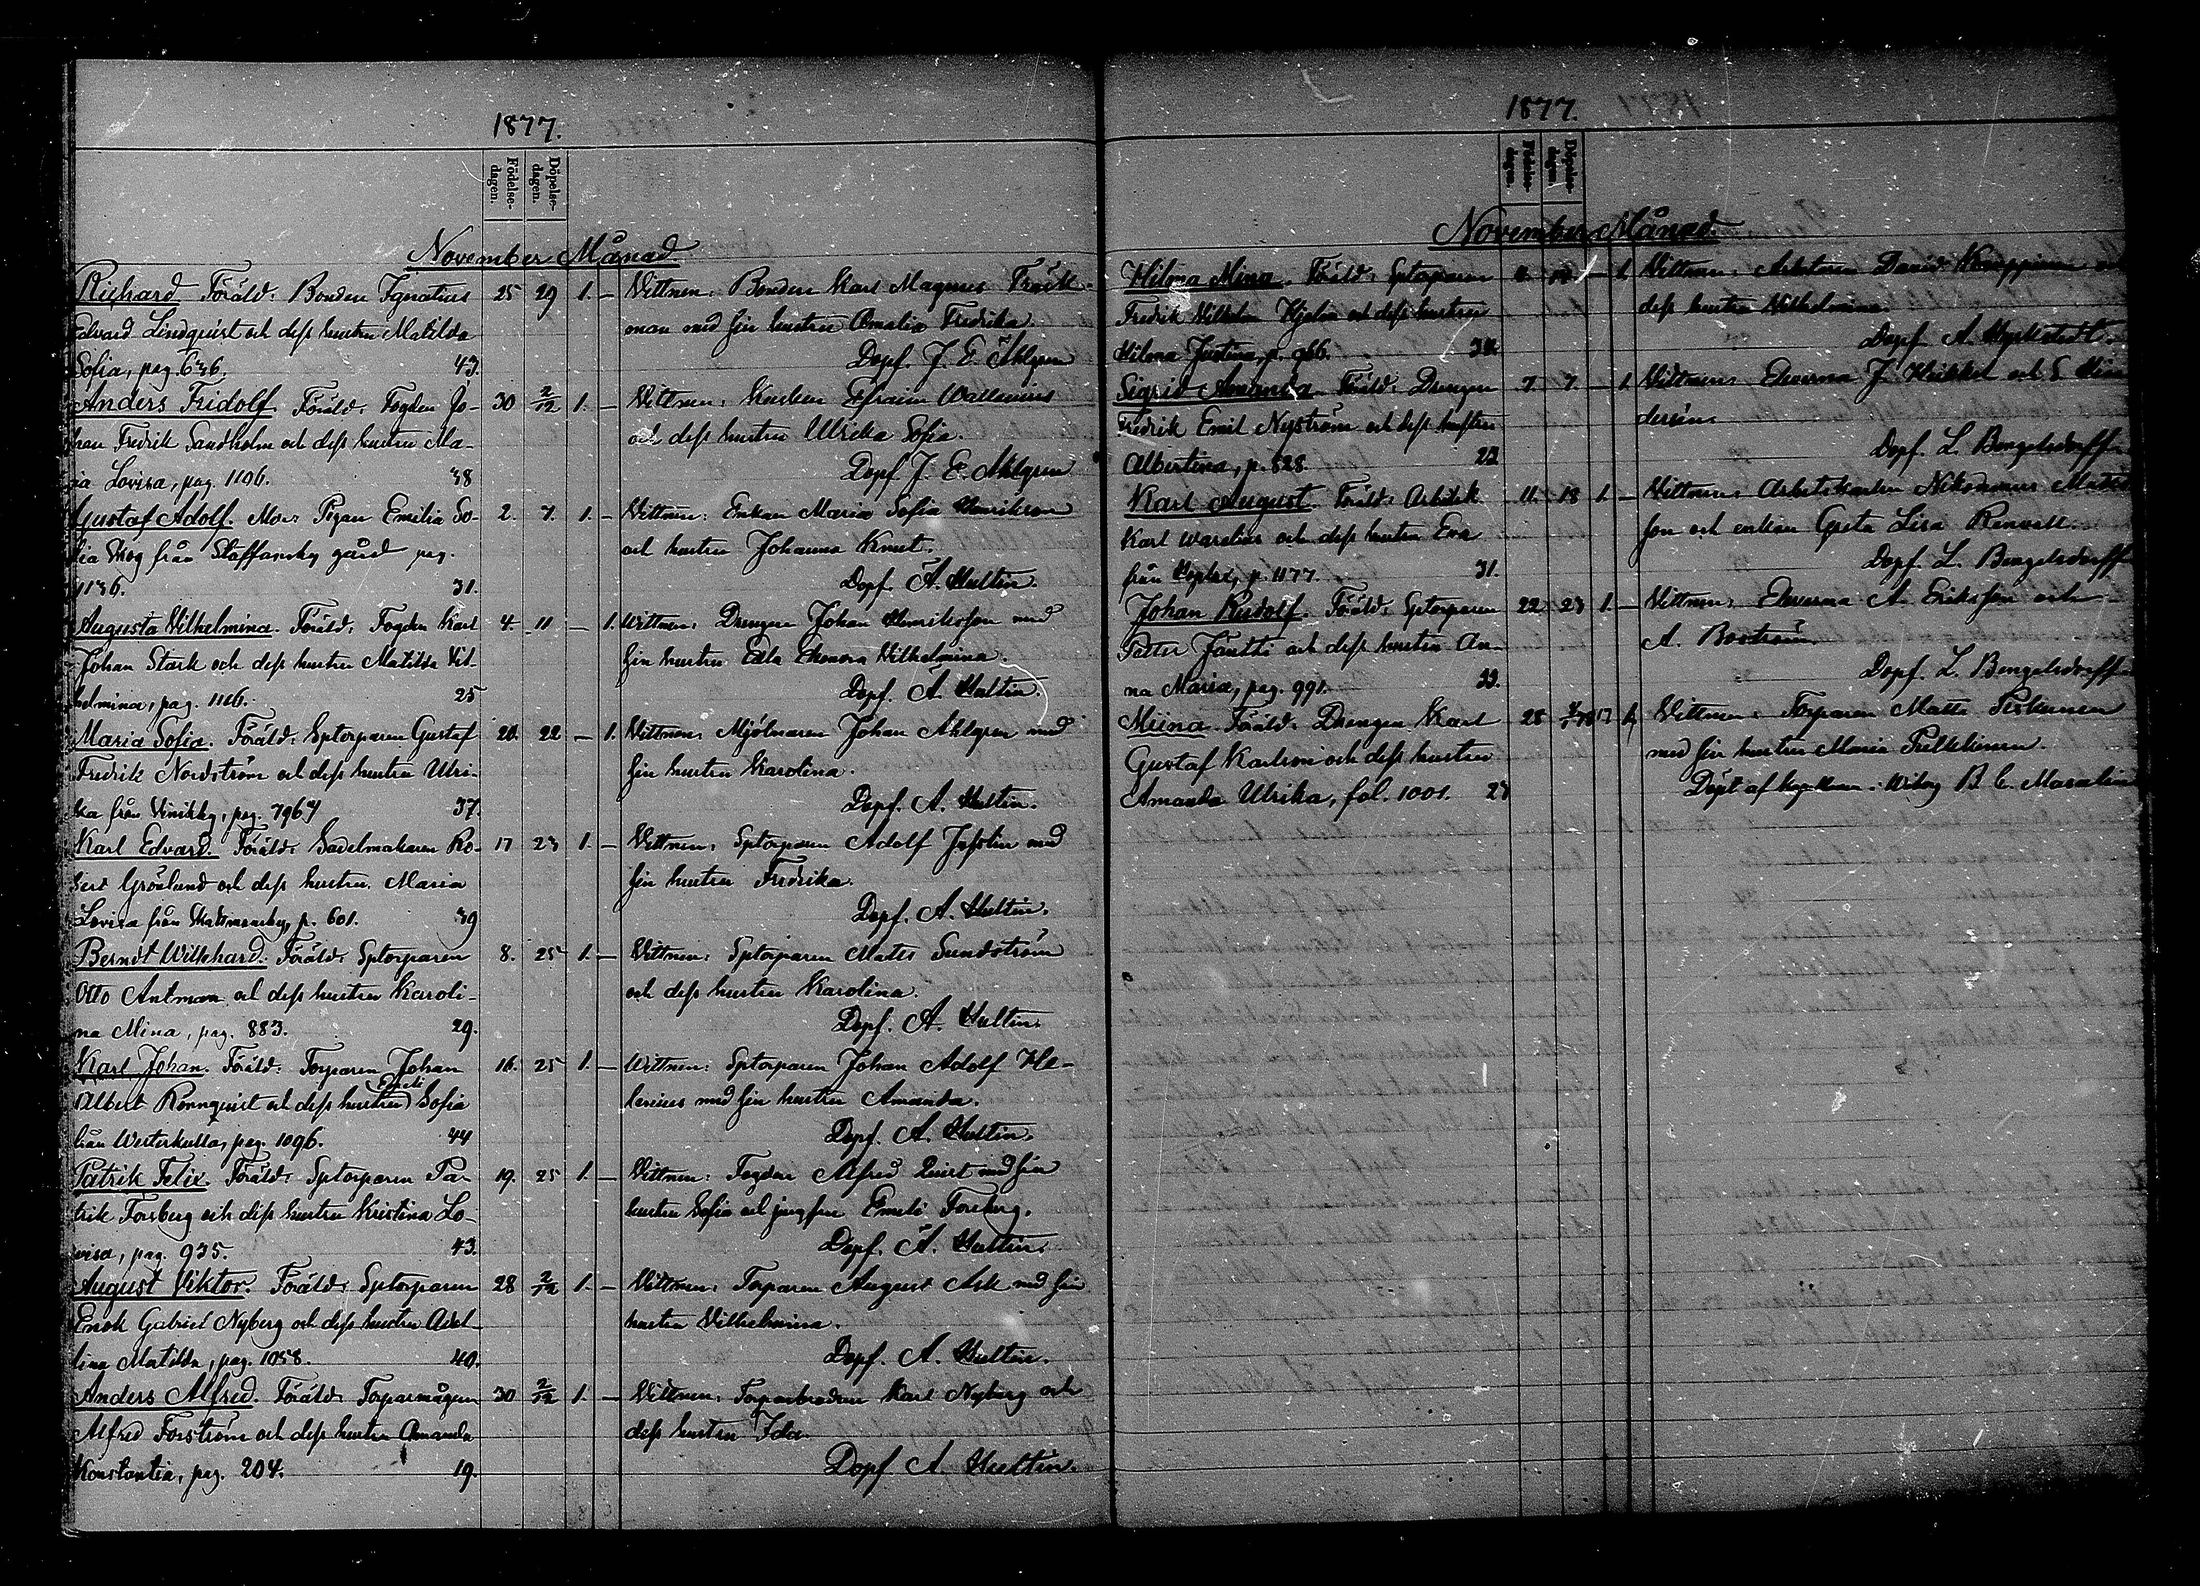 1877.
Födelse-dagen.
Döpelse-dagen.
November Månad.
Richard Föräld: Bonden Ignatius 25 29 1. — Vittnen: Bonden Karl Magnus
Edvard Lindquist och dess hustru Matilda man med sin hustru Amalia Fredrika.
Sofia, pag. 636. 43. Döpf. J. E. Ahlgren
Anders Fridolf Föräld: Fogden Jo- 30 2/12 1. — Vittnen: Kusken Efraim Wallenius
han Fredrik Sandholm och dess hustru Ma- och dess hustru Ulrika Sofia.
ria Lovisa, pag. 1106. 38 Döpf. J. E. Ahlgren
Gustaf Adolf. Mor: Pigan Emilia So- 2. 7. 1. — Vittnen: Enkan Maria Sofia Henrikson
fia Skog från Staffansby gård pag. och hustru Johanna Knut.
1136. 31. Döpf. A. Hultin.
Augusta Vilhelmina. Föräld: Fogden Karl 4. 11 — 1. Vittnen: Drengen Johan Henriksson med
Johan Stark och dess hustru Matilda Vil- sin hustru Edla Eleonora Vilhelmina.
helmina, pag. 1116. 25 Döpf. A. Hultin.
Maria Sofia. Föräld: Sptorparen Gustaf 20. 22 — 1. Vittnen: Mjölnaren Johan Ahlgren med
Fredrik Nordström och dess hustru Ulri- sin hustru Karolina.
ka från Vinikby, pag. 37. Döpf. A. Hultin.
Karl Edvard. Föräld: Sadelmakaren Ro- 17 23 1. — Vittnen: Sptorparen Adolf med
bert Grönlund och dess hustru Maria sin hustru Fredrika.
Lovisa från p. 601. 39 Döpf. A. Hultin.
Berndt Föräld: Sptorparen 8. 25 1. — Vittnen: Sptorparen Matts Sundström
Otto Antman och dess hustru Karoli- och dess hustru Karolina.
na Mina, pag. 883. 29. Döpf. A. Hultin.
Karl Johan. Föräld: Torparen Johan 16. 25 1. — Vittnen: Sptorparen Johan Adolf He-
Albert Rönnquist och dess hustru Emeli Sofia lenius med sin hustru Amanda.
från Westerkulla, pag. 1096. 44 Döpf. A. Hultin.
Patrik Felix. Föräld: Sptorparen Pa- 19. 25 1. — Vittnen: Fogden Alfred Quist med sin
trik Forsberg och dess hustru Kristina Lo- hustru Sofia och jungfru Emeli Forsberg.
visa, pag. 935. 43. Döpf. A. Hultin.
August Viktor. Föräld: Sptorparen 28 2/12 1. — Vittnen: Torparen August Ask med sin
Enok Gabriel Nyberg och dess hustru Adel- hustru Vilhelmina.
lina Matilda, pag. 1058. 40. Döpf. A. Hultin.
Anders Alfred. Föräld: Torparmågen 30 2/12 1. — Vittnen: Torparbrodren Karl Nyberg och
Alfred Forström och dess hustru Amanda dess hustru Ida.
Konstantia, pag. 204. 19. Döpf. A. Hultin.
1877.
Födelse-dagen.
Döpelse-dagen.
November Månad.
Hilma Mina. Föräld: Sptorparen — 1. Vittnen: Arbetaren David
Fredrik Vilhelm Hjelm och dess hustru dess hustru Vilhelmina.
Hilma Justina, p. 966. Döpf. A.
Sigrid Amanda Föräld: Drengen 7. 7. — 1. Vittnen: J.
Fredrik Emil Nyström och dess hustru
Albertina, p. 828. 22 Döpf. L. Bengelsdorff
Karl August. Föräld: Arbetsk 11. 18 1. — Vittnen: Arbetskarlen Nikodemus
Karl Warelius och dess hustru Eva son och enkan Greta Lisa Renvall.
från Hoplax, p. 1177. 31. Döpf. L. Bengelsdorff
Johan Rudolf. Föräld: Sptorparen 22 23 1. — Vittnen: A. Eriksson och
Petter Jäntti och dess hustru An- A. Boström.
na Maria, pag. 991. 33. Döpf. L. Bengelsdorff
Miina. Föräld: Drengen Karl 28 Vittnen: Torparen Matts
Gustaf Karlson och dess hustru med sin hustru Maria
Amanda Ulrika, fol. 1001. 27 Döpt af B. C.